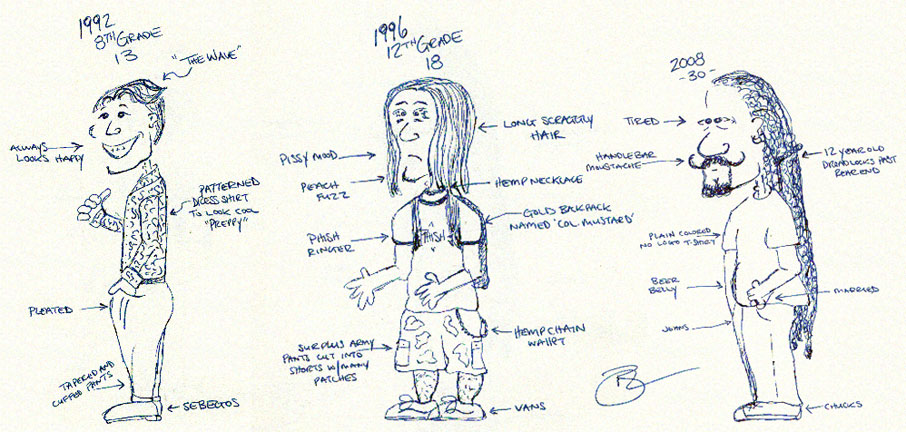 1992
8TH GRADE
13
"THE WAVE"
ALWAYS
LOOKS HAPPY
PATTERNED
DRESS SHIRT
TO LOOK COOL
"PREPPY"
PLEATED
TAPERED AND
CUFFED PANTS
SEBEGOS
1996
12TH GRADE
18
LONG SCRAGGLY
HAIR
PISSY MOOD
PEACH
FUZZ
HEMP NECKLACE
GOLD BACKPACK
NAMED 'COL MUSTARD'
PHISH
RINGER
PHISH
HEMP CHAIN
WALLET
SURPLUS ARMY
PANTS CUT INTO
SHORTS W/MANY
PATCHES
VANS
2008
-30-
TIRED
HANDLEBAR
MOUSTACHE
12 YEAR OLD
DREADLOCKS PAST
REAR END
PLAIN COLORED
NO LOGO T-SHIRT
BEER
BELLY
MARRIED
JEANS
CHUCKS